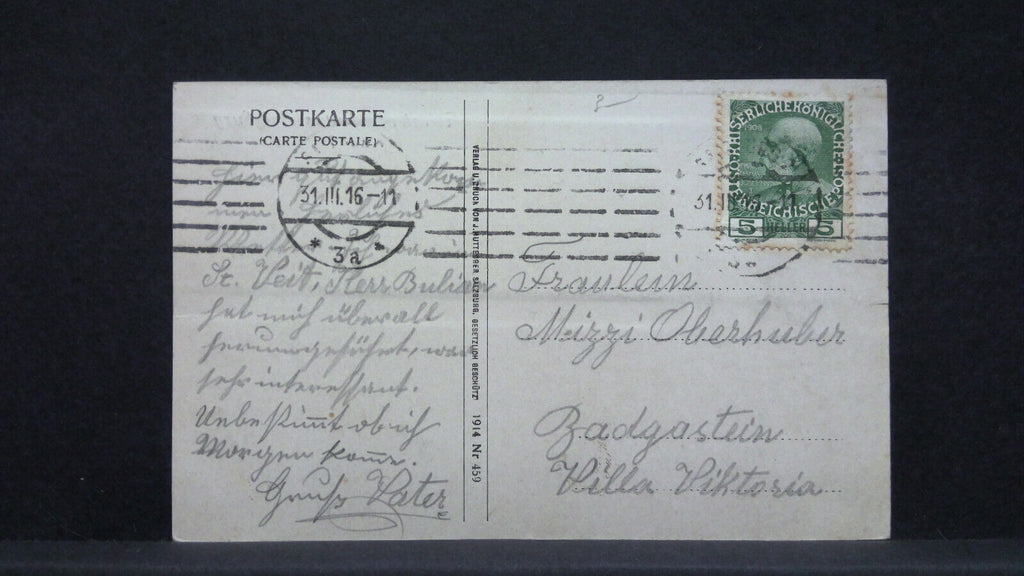 POSTKARTE
(CARTE POSTALE)
31.III.16-11
* 3a *
hier gut angekom
men herrliches
St. Veit, Herr Bulian
hat mich überall
herumgeführt, war
sehr interessant.
Unbestimmt ob ich
Morgen komme.
Gruß Vater
VERLAG U. DRUCK VON J. HUTTEGGER, SALZBURG. GESETZLICH GESCHÜTZT 1914 Nr 459
1908
KAISERLICHE KÖNIGLICHE ÖSTERREICHISCHE POST
5 HELLER 5
Fräulein
Mizzi Oberhuber
Badgastein
Villa Viktoria